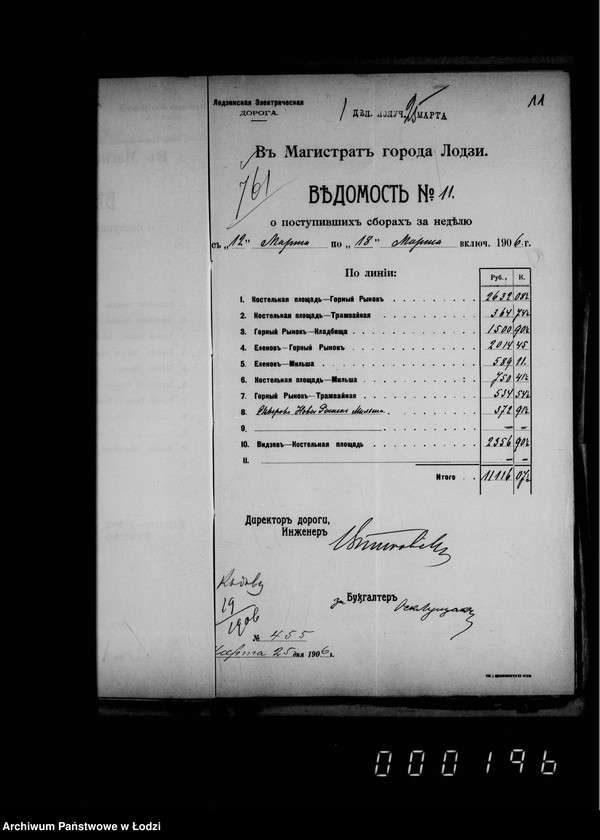 Лодзинская Электрическая
ДОРОГА.
1 ДѢЛ. ПОЛУЧ. 25 МАРТА
11
Въ Магистратъ города Лодзи.
761
ВѢДОМОСТЬ № 11.
о поступившихъ сборахъ за недѣлю
съ „12" Марта по „18" Марта включ. 1906 г.
По линіи:
Руб. К.
1. Костельная площадь—Горный Рынокъ 2632 08½
2. Костельная площадь—Трамвайная 364 74½
3. Горный Рынокъ—Кладбища 1500 90½
4. Еленовъ—Горный Рынокъ 2014 45
5. Еленовъ—Мильша 589 11.
6. Костельная площадь—Мильша 750 41½
7. Горный Рынокъ—Трамвайная 534 54½
8. Мильша. 372 91½
9. — —
10. Видзевъ—Костельная площадь 2356 90½
11. — —
Итого 11116 07½
Директоръ дороги,
Инженеръ
за Бухгалтеръ
19
1906
№ 455
Марта 25 дня 1906 г.
000196
Archiwum Państwowe w Łodzi